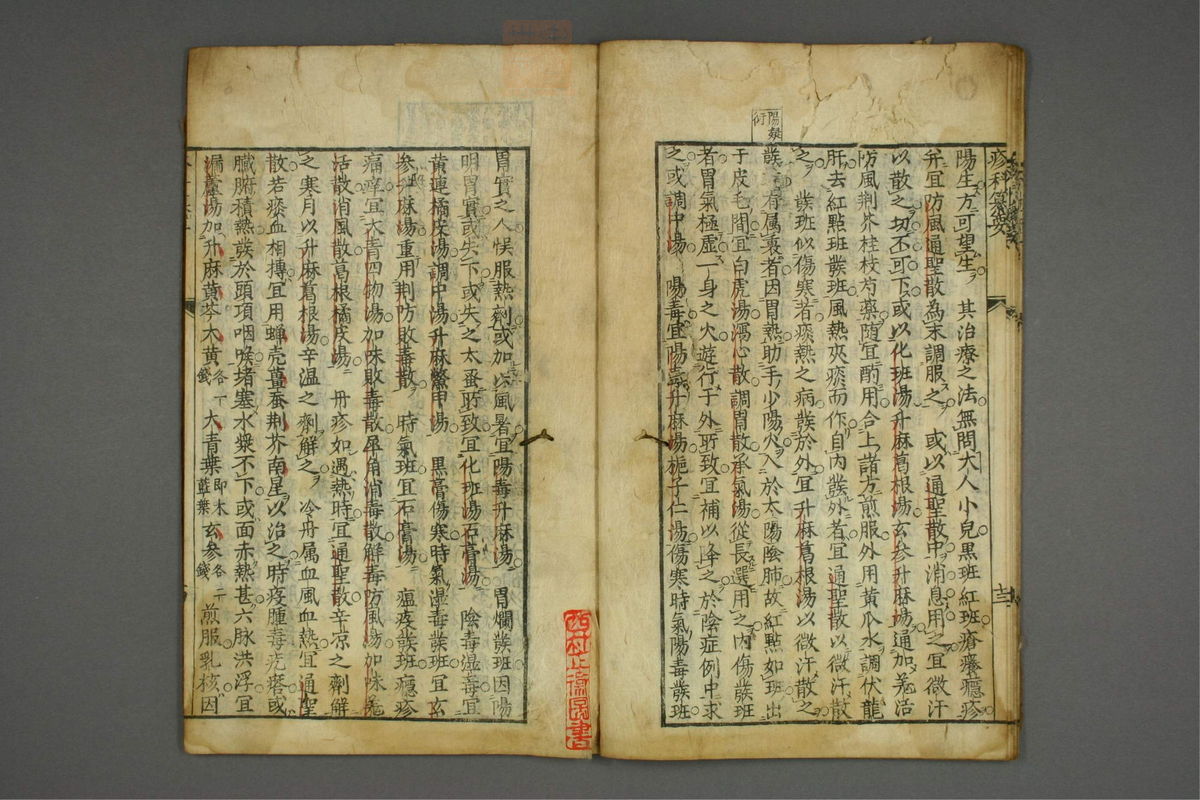 陽生方可望生 其治療之法無問大人小兒黒班紅班瘡癢癮疹
并宜防風通聖散為末調服之 或以通聖散中消息用之宜微汗
以散之切不可下或以化班湯升麻葛根湯玄参升麻湯通加羗活
防風荆芥桂枝芍藥随宜酌用合上諸方煎服外用黄瓜水調伏龍
肝去紅點班發班風熱夾痰而作自内發外者宜通聖散以微汗散
之 發班似傷寒者痰熱之病發於外宜升麻葛根湯以微汗散之
發 有属裏者因胃熱助手少陽火入於太陰肺故紅點如班出
于皮毛間宜白虎湯瀉心散調胃散承氣湯從長選用之内傷發班
者胃氣極虚一身之火遊行于外所致宜補以降之於陰症例中求
之或調中湯 陽毒宜陽毒升麻湯梔子仁湯傷寒時氣陽毒發班
陽疑衍
胃實之人悮服熱剤或加以風暑宜陽毒升麻湯 胃爛發班因陽
明胃實或失下或失之太蚤所致宜化班湯石膏湯 陰毒湿毒宜
黄連橘皮湯調中湯升麻鱉甲湯 黒膏傷寒時氣湿毒發班宜玄
参升麻湯重用荆防敗毒散 時氣班宜石膏湯 瘟疫發班癮疹
痛痒宜大青四物湯加味敗毒散犀角消毒散解毒防風湯加味羗
活散消風散葛根橘皮湯 丹疹如遇熱時宜通聖散辛凉之劑解
之寒月以升麻葛根湯辛温之劑解之 冷丹属血風血熱宜通聖
散若痰血相搏宜用蝉壳薑蚕荆芥南星以治之時疫腫毒疙瘩或
臓腑積熱發於頭項咽喉堵塞水漿不下或面赤熱甚六脉洪浮宜
漏蘆湯加升麻黄芩大黄各一錢大青葉即木藍葉玄参各二錢煎服乳核因